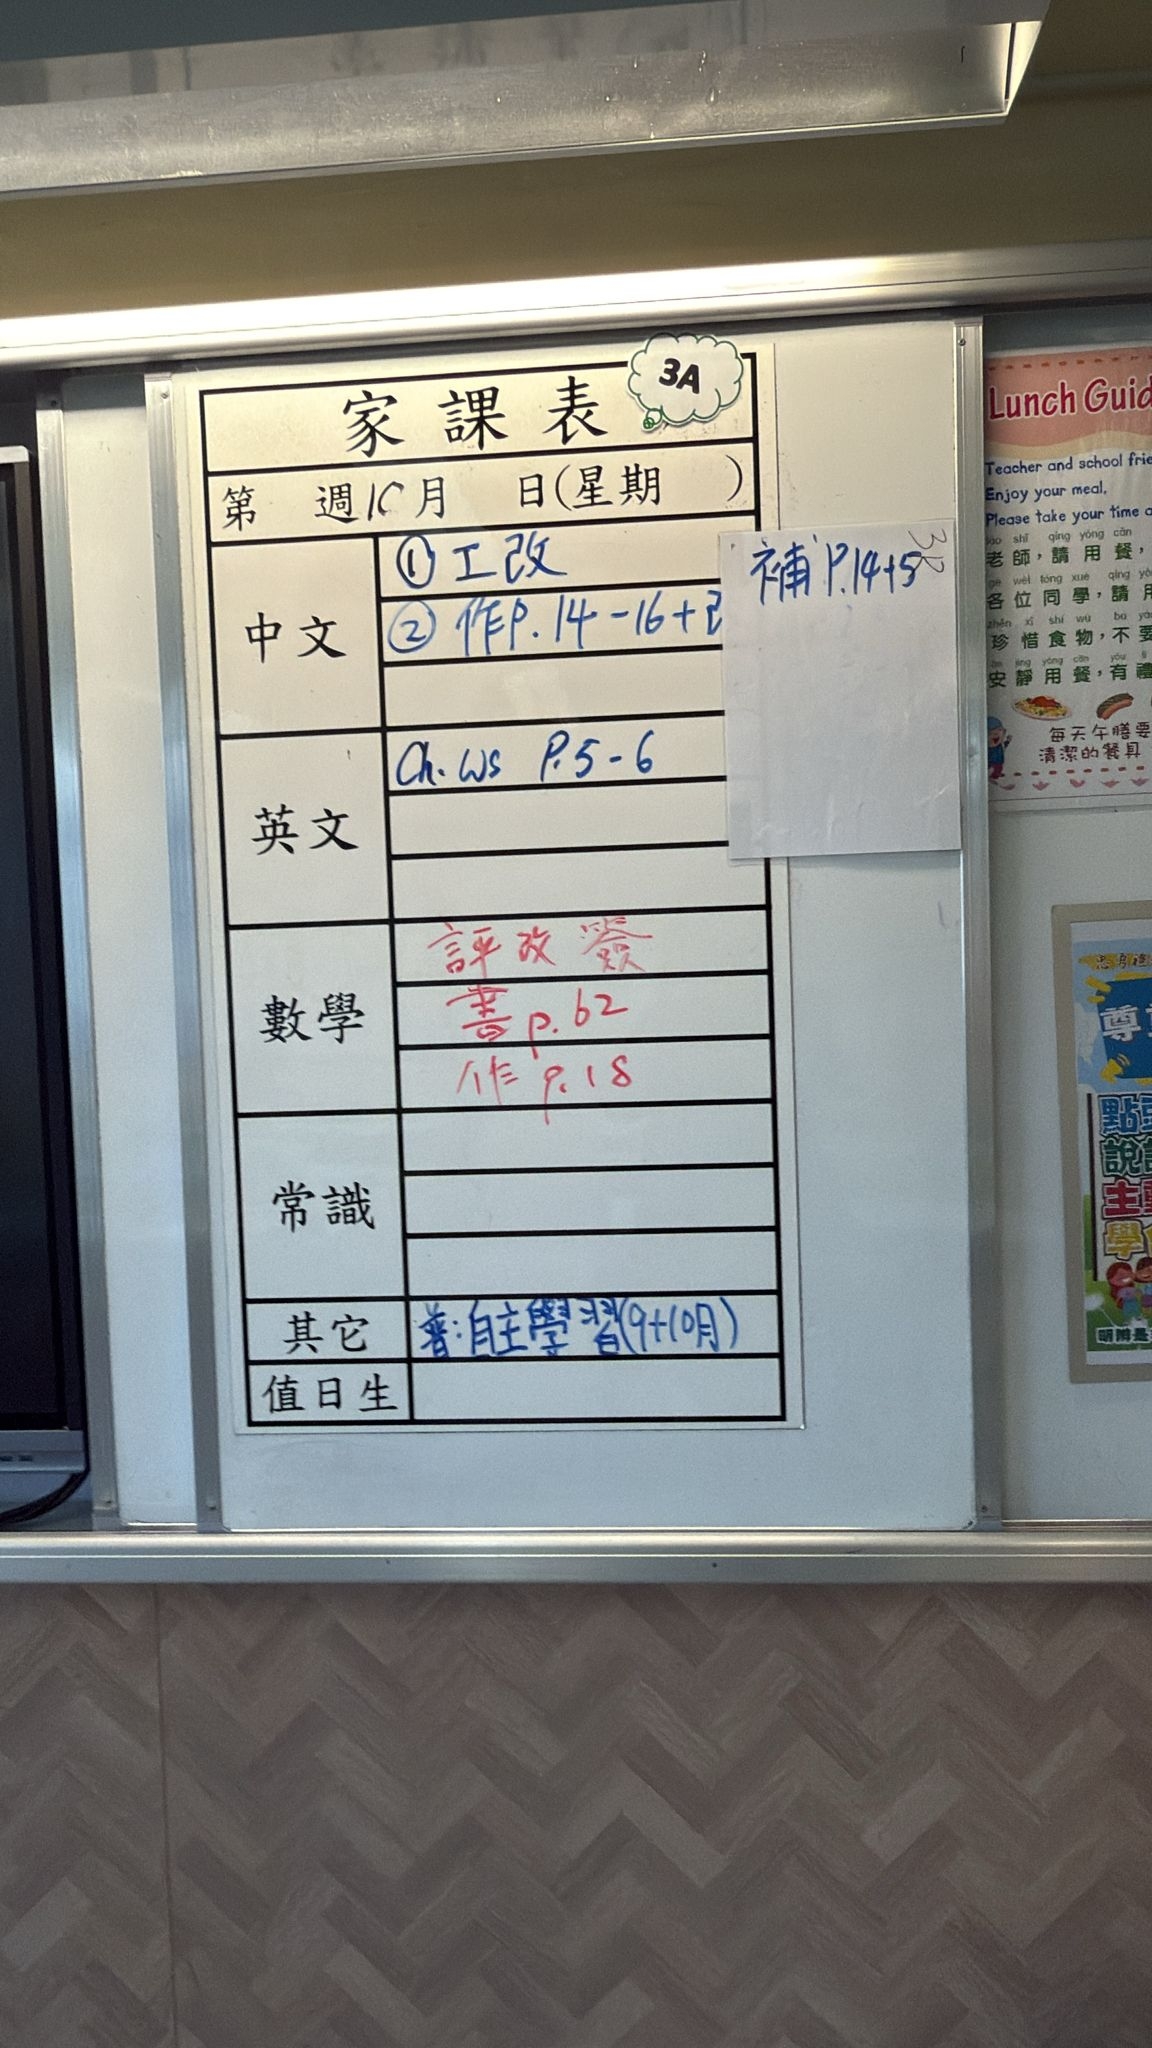 家課表
3A
第 週10月 日(星期 )
中文
① 工改
② 作P.14-16+
補 P.14+5
英文
Ch. WS P.5-6
數學
評改簽
書 p.62
作 p.18
常識
其它
普:自主學習(9+10月)
值日生
Lunch Guid
Teacher and school frie
Enjoy your meal,
Please take your time a
老師，請用餐，
gè wèi tóng xué qǐng
各位同學，請用
珍惜食物，不要
安靜用餐，有禮
每天午膳要
清潔的餐具
尊
點頭
說
主動
學
明辨是